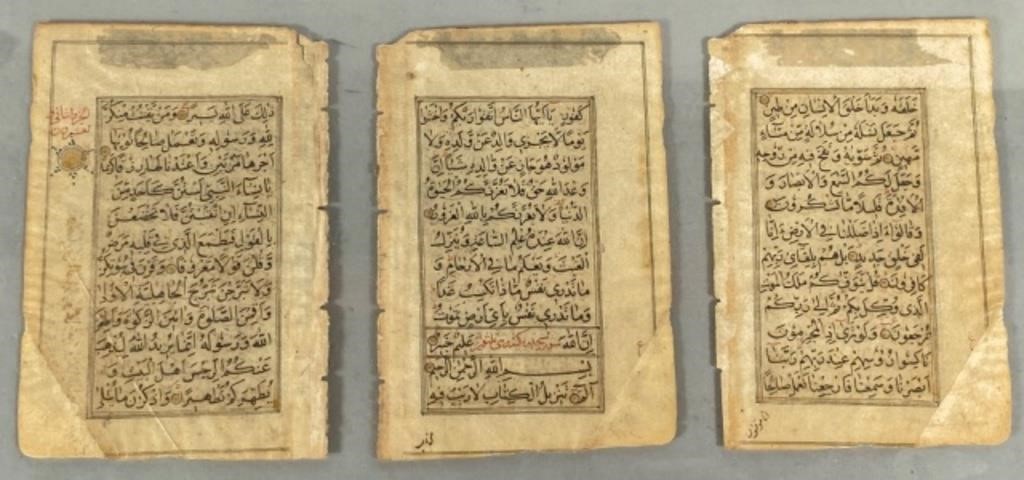 خلقه وبدأ خلق الانسان من طين
ثم جعل نسله من سلالة من ماء
مهين ثم سويه ونفخ فيه من روحه
وجعل لكم السمع والابصار و
الافئدة قليلا ما تشكرون
وقالوا ءاذا ضللنا في الارض ءانا
لفي خلق جديد بل هم بلقاي ربهم
كافرون قل يتوفيكم ملك الموت
الذي وكل بكم ثم الى ربكم
ترجعون ولو ترى اذ المجرمون
ناكسوا رؤسهم عند ربهم ربنا
ابصرنا وسمعنا فارجعنا نعمل صالحا
انا موقنون
كفور يا ايها الناس اتقوا ربكم واخشوا
يوما لا يجزي والد عن ولده ولا
مولود هو جاز عن والده شيئا ان
وعد الله حق فلا تغرنكم الحيوة
الدنيا ولا يغرنكم بالله الغرور
ان الله عنده علم الساعة وينزل
الغيث ويعلم ما في الارحام و
ما تدري نفس ماذا تكسب غدا
وما تدري نفس باي ارض تموت
ان الله عليم خبير
بسم الله الرحمن الرحيم
الم تنزيل الكتاب لا ريب فيه
ذلك على الله يسيرا ومن يقنت منكن
لله ورسوله وتعمل صالحا نؤتها
اجرها مرتين واعتدنا لها رزقا كريما
يا نساء النبي لستن كاحد من
النساء ان اتقيتن فلا تخضعن
بالقول فيطمع الذي في قلبه مرض
وقلن قولا معروفا وقرن في بيوتكن
ولا تبرجن تبرج الجاهلية الاولى
واقمن الصلوة واتين الزكوة واطعن
الله ورسوله انما يريد الله ليذهب
عنكم الرجس اهل البيت و
يطهركم تطهيرا واذكرن ما يتلى